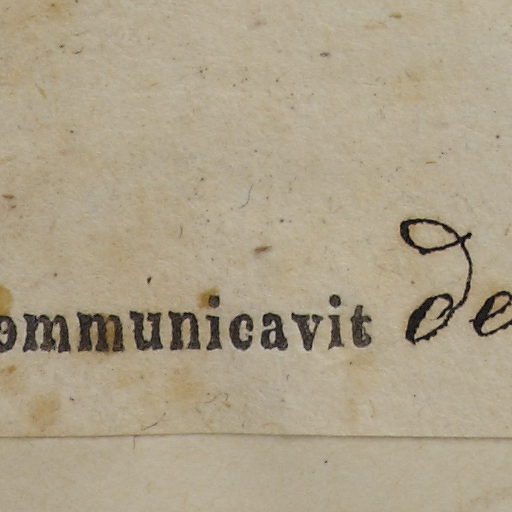 ommunicavit de